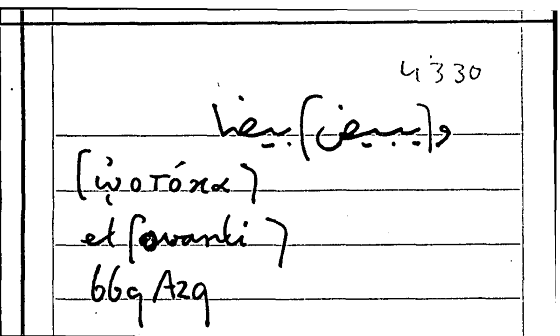 4330
و(يبيض) بيضا
(ᾠοτόκα)
et (ovanti)
66g A29